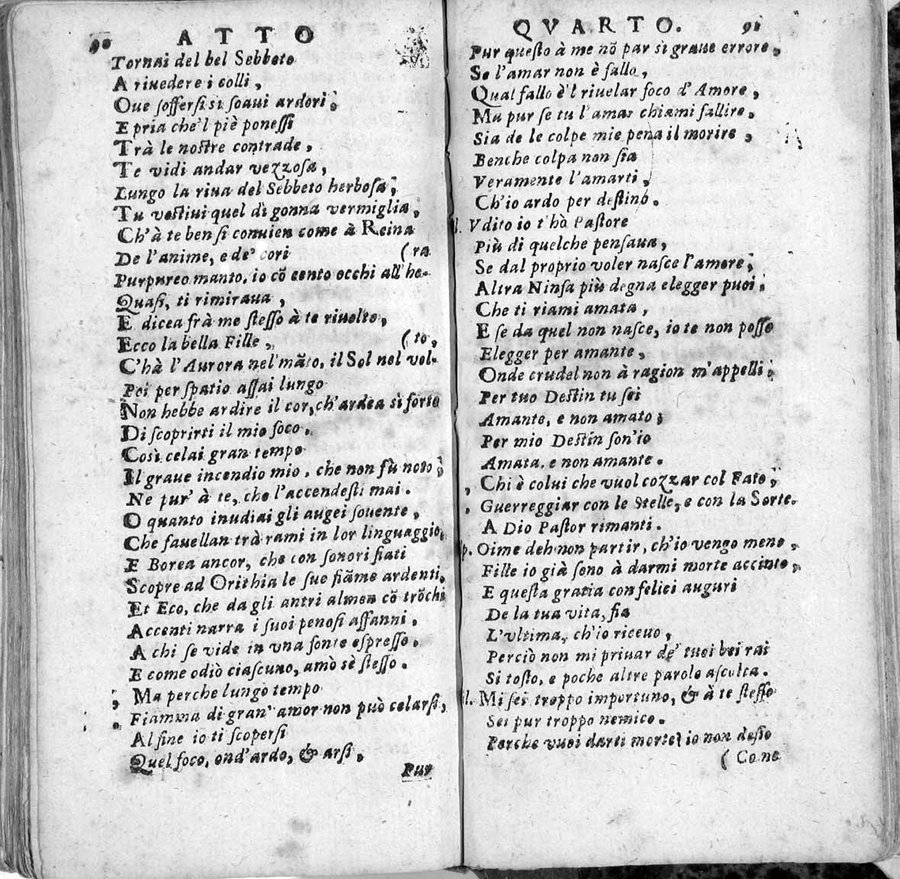 90 ATTO
Tornai del bel Sebbeto
A riuedere i colli,
Oue soffersi sì soaui ardori;
E pria che'l piè ponessi
Trà le nostre contrade,
Te vidi andar vezzosa,
Lungo la riua del Sebbeto herbosa;
Tu vestiui quel dì gonna vermiglia,
Ch'à te ben si conuien come à Reina
De l'anime, e de' cori (ra
Purpureo manto, io cō cento occhi all'ho-
Quasi, ti rimiraua,
E dicea frà me stesso à te riuolto,
Ecco la bella Fille, (to,
C'hà l'Aurora nel māto, il Sol nel vol-
Poi per spatio assai lungo
Non hebbe ardire il cor, ch'ardea sì forte
Di scoprirti il mio foco.
Così celai gran tempo
Il graue incendio mio, che non fù noto;
Ne pur' à te, che l'accendesti mai.
O quanto inuidiai gli augei souente,
Che fauellan trà rami in lor linguaggio,
E Borea ancor, che con sonori fiati
Scopre ad Orithia le sue fiāme ardenti,
Et Eco, che da gli antri almen cō trōchi
Accenti narra i suoi penosi affanni,
A chi se vide in vna fonte espresso.
E come odiò ciascuno, amò sè stesso.
Ma perche lungo tempo
Fiamma di gran' amor non può celarsi,
Al fine io ti scopersi
Quel foco, ond'ardo, & arsi,
Pur
QVARTO. 91
Pur questo à me nō par sì graue errore,
Se l'amar non è fallo,
Qual fallo è'l riuelar foco d'Amore,
Ma pur se tu l'amar chiami fallire,
Sia de le colpe mie pena il morire,
Benche colpa non sia
Veramente l'amarti,
Ch'io ardo per destino.
l. Vdito io t'hò Pastore
Più di quelche pensaua,
Se dal proprio voler nasce l'amore;
Altra Ninfa più degna elegger puoi,
Che ti riami amata,
E se da quel non nasce, io te non posso
Elegger per amante,
Onde crudel non à ragion m'appelli;
Per tuo Destin tu sei
Amante, e non amato;
Per mio Destin son'io
Amata, e non amante.
Chi è colui che vuol cozzar col Fato;
Guerreggiar con le Stelle, e con la Sorte.
A Dio Pastor rimanti.
p. Oime deh non partir, ch'io vengo meno,
Fille io già sono à darmi morte accinto,
E questa gratia con felici auguri
De la tua vita, sia
L'vltima, ch'io riceuo,
Perciò non mi priuar de' tuoi bei rai
Sì tosto, e poche altre parole ascolta.
l. Mi sei troppo importuno, & à te stesso
Sei pur troppo nemico.
Perche vuoi darti morte? io non desio
(Co ne